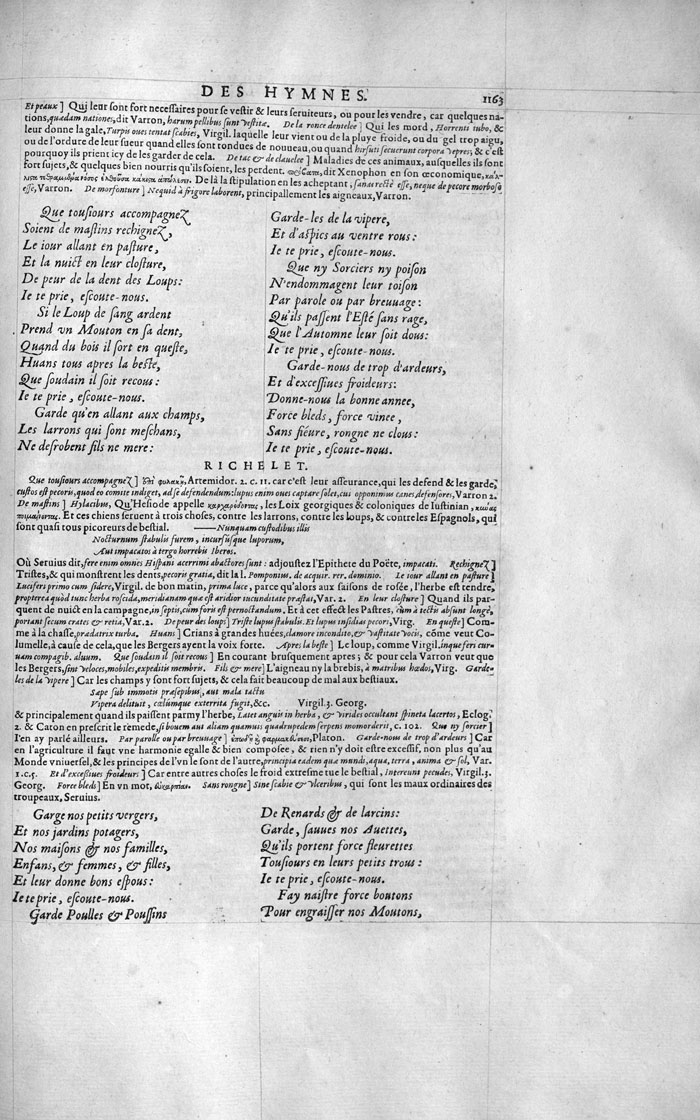 DES HYMNES.
1163
Et peaux ] Qui leur sont fort necessaires pour se vestir & leurs seruiteurs, ou pour les vendre, car quelques na-
tions, quædam nationes, dit Varron, harum pellibus sunt vestita. De la ronce dentelee ] Qui les mord, Horrenti tubo, &
leur donne la gale, Turpis oues tentat scabies, Virgil. laquelle leur vient ou de la pluye froide, ou du gel trop aigu,
ou de l'ordure de leur sueur quand elles sont tondues de nouueau, ou quand hirsuti secuerunt corpora vepres; & c'est
pourquoy ils prient icy de les garder de cela. De tac & de clauelee ] Maladies de ces animaux, ausquelles ils sont
fort sujets, & quelques bien nourris qu'ils soient, les perdent. dit Xenophon en son œconomique,
De là la stipulation en les acheptant, sanas rectè esse, neque de pecore morboso
esse, Varron. De morfonture ] Nequid à frigore laborent, principallement les aigneaux, Varron.
Que tousiours accompagnez
Soient de mastins rechignez,
Le iour allant en pasture,
Et la nuict en leur closture,
De peur de la dent des Loups:
Ie te prie, escoute-nous.
Si le Loup de sang ardent
Prend vn Mouton en sa dent,
Quand du bois il sort en queste,
Huans tous apres la beste,
Que soudain il soit recous:
Ie te prie, escoute-nous.
Garde qu'en allant aux champs,
Les larrons qui sont meschans,
Ne desrobent fils ne mere:
Garde-les de la vipere,
Et d'aspics au ventre rous:
Ie te prie, escoute-nous.
Que ny Sorciers ny poison
N'endommagent leur toison
Par parole ou par breuuage:
Qu'ils passent l'Esté sans rage,
Que l'Automne leur soit dous:
Ie te prie, escoute-nous.
Garde-nous de trop d'ardeurs,
Et d'excessiues froideurs:
Donne-nous la bonne annee,
Force bleds, force vinee,
Sans fiéure, rongne ne clous:
Ie te prie, escoute-nous.
RICHELET.
Que tousiours accompagnez ] Artemidor. 2. c. 11. car c'est leur asseurance, qui les defend & les garde,
custos est pecoris, quod eo comite indiget, ad se defendendum: lupus enim oues captare solet, cui opponimus canes defensores, Varron 2.
De mastins ] Hylacibus, Qu'Hesiode appelle les Loix georgiques & coloniques de Iustinian,
Et ces chiens seruent à trois choses, contre les larrons, contre les loups, & contre les Espagnols, qui
sont quasi tous picoreurs de bestial. ——Nunquam custodibus illis
Nocturnum stabulis furem, incursúsque luporum,
Aut impacatos à tergo horrebis Iberos.
Où Seruius dit, fere enim omnes Hispani acerrimi abactores sunt: adjoustez l'Epithete du Poëte, impacati. Rechignez ]
Tristes, & qui monstrent les dents, pecoris gratia, dit la l. Pomponius. de acquir. rer. dominio. Le iour allant en pasture ]
Luciferi primo cum sidere, Virgil. de bon matin, prima luce, parce qu'alors aux saisons de rosée, l'herbe est tendre,
propterea quòd tunc herba roscida, meridianam quæ est aridior iucunditate præstat, Var. 2. En leur closture ] Quand ils par-
quent de nuict en la campagne, in septis, cum foris est pernoctandum. Et à cet effect les Pastres, cùm à tectis absunt longè,
portant secum crates & retia, Var. 2. De peur des loups ] Triste lupus stabulis. Et lupus insidias pecori, Virg. En queste ] Com-
me à la chasse, prædatrix turba. Huans ] Crians à grandes huées, clamore incondito, & vastitate vocis, cõme veut Co-
lumelle, à cause de cela, que les Bergers ayent la voix forte. Apres la beste ] Le loup, comme Virgil. inque feri cur-
uam compagib. aluum. Que soudain il soit recous ] En courant brusquement apres; & pour cela Varron veut que
les Bergers, sint veloces, mobiles, expeditis membris. Fils & mere ] L'aigneau ny la brebis, à matribus hœdos, Virg. Garde-
les de la vipere ] Car les champs y sont fort sujets, & cela fait beaucoup de mal aux bestiaux.
Sæpe sub immotis præsepibus, aut mala tactu
Vipera delituit, cœlúmque exterrita fugit, &c. Virgil. 3. Georg.
& principalement quand ils paissent parmy l'herbe, Latet anguis in herba, & virides occultant spineta lacertos, Eclog.
2. & Caton en prescrit le remede, si bouem aut aliam quamuis quadrupedem serpens momorderit, c. 102. Que ny sorcier ]
I'en ay parlé ailleurs. Par parolle ou par breuuage ] Platon. Garde-nous de trop d'ardeurs ] Car
en l'agriculture il faut vne harmonie egalle & bien composée, & rien n'y doit estre excessif, non plus qu'au
Monde vniuersel, & les principes de l'vn le sont de l'autre, principia eadem quæ mundi, aqua, terra, anima & sol, Var.
1. c. 5. Et d'excessiues froideurs ] Car entre autres choses le froid extresme tue le bestial, Intereunt pecudes, Virgil. 3.
Georg. Force bleds ] En vn mot, Sans rongne ] Sine scabie & vlceribus, qui sont les maux ordinaires des
troupeaux, Seruius.
Garge nos petits vergers,
Et nos jardins potagers,
Nos maisons & nos familles,
Enfans, & femmes, & filles,
Et leur donne bons espous:
Ie te prie, escoute-nous.
Garde Poulles & Poussins
De Renards & de larcins:
Garde, sauues nos Auettes,
Qu'ils portent force fleurettes
Tousiours en leurs petits trous:
Ie te prie, escoute-nous.
Fay naistre force boutons
Pour engraisser nos Moutons,